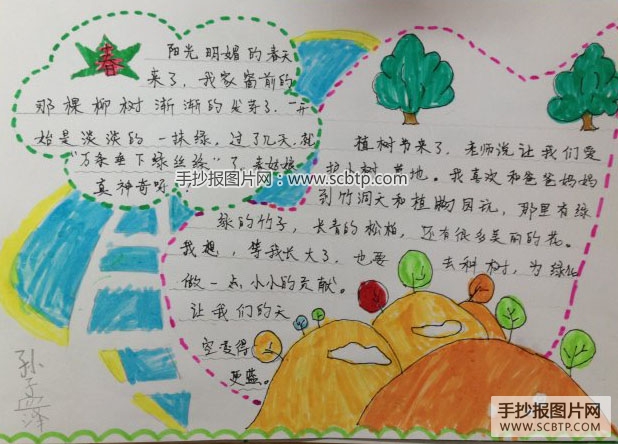 春
阳光明媚的春天
来了，我家窗前的
那棵柳树渐渐的发芽了，一开
始是淡淡的一抹绿，过了几天，就
"万条垂下绿丝绦"了，春姑娘
真神奇呀
手抄报图片网：www.scbtp.com
植树节来了，老师说让我们爱
护小树、草地。我喜欢和爸爸妈妈
到竹洞天和植物园玩，那里有绿
绿的竹子，长青的松柏，还有很多美丽的花。
我想，等我长大了，也要去种树，为绿化
做一点小小的贡献。
让我们的天
空变得
更蓝。
孙孟泽
手抄报图片网
WWW.SCBTP.COM